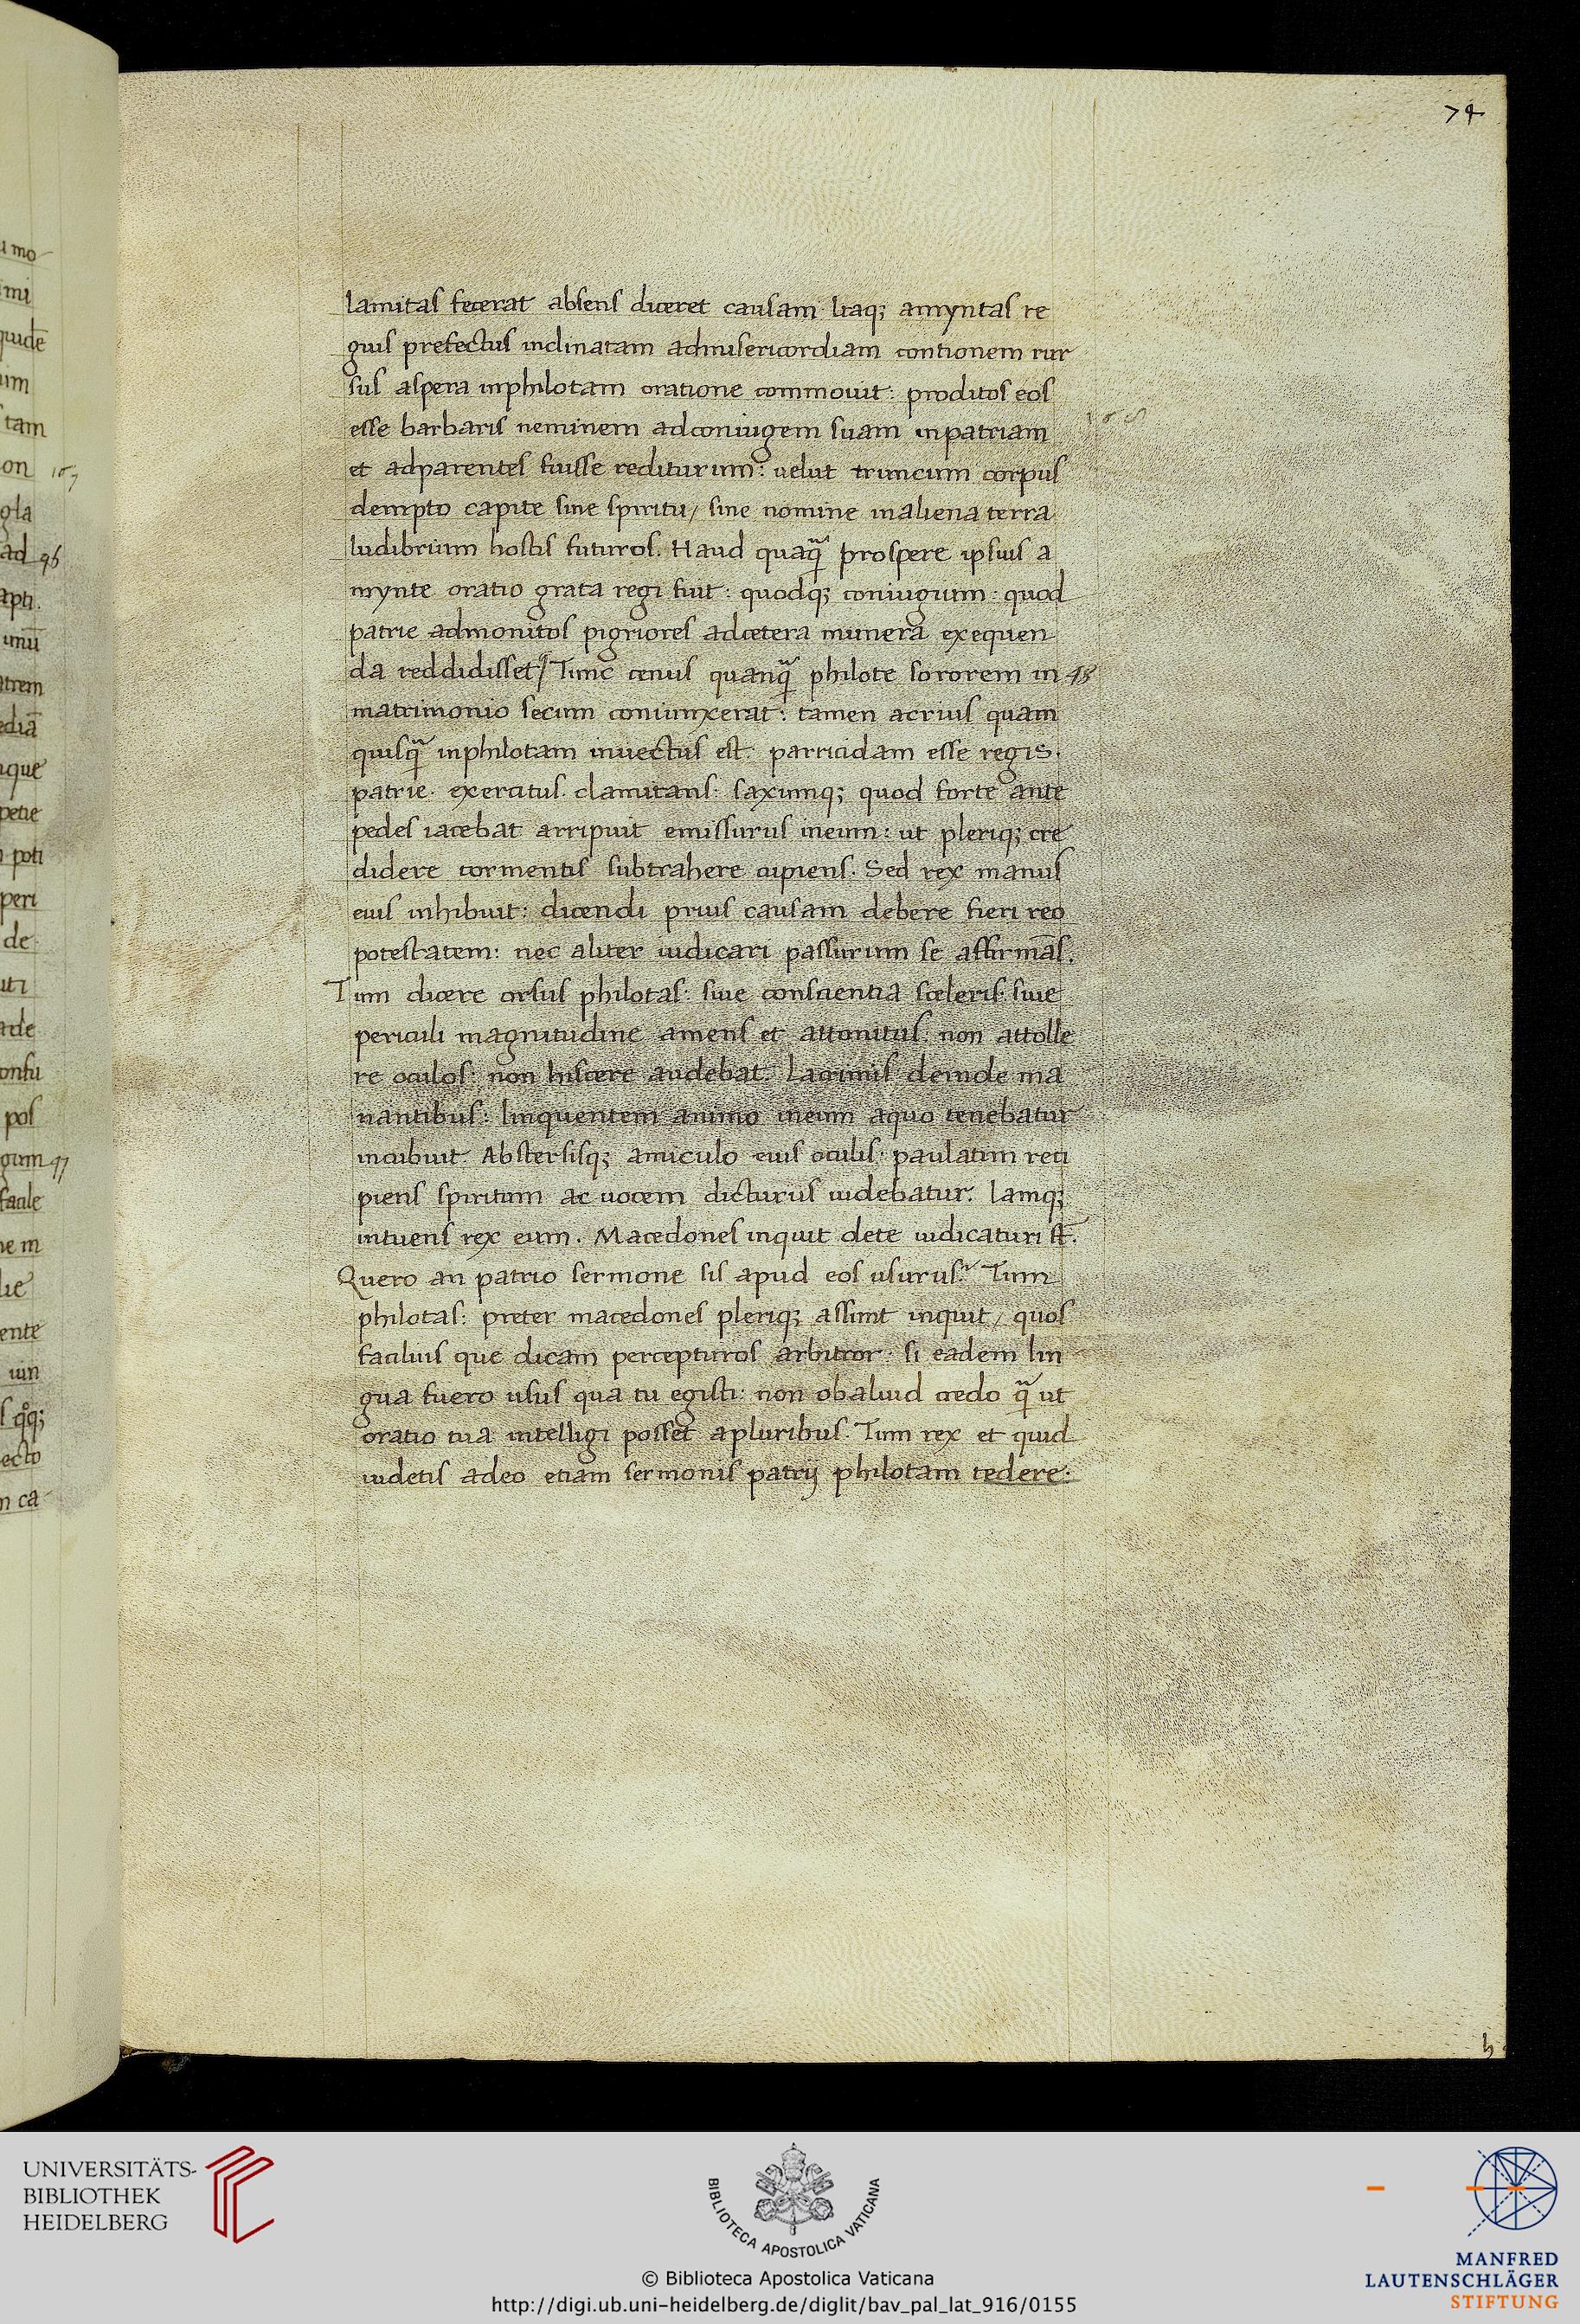 74
lamitas fecerat absens diceret causam. Itaq; amyntas re
gius prefectus inclinatam admisericordiam contionem rur
sus aspera inphilotam oratione commouit: proditos eos
esse barbaris neminem adconiugem suam inpatriam
et adparentes fuisse rediturum: uelut truncum corpus
dempto capite sine spiritu/ sine nomine inaliena terra
ludibrium hostis futuros. Haud quaqᷓ prospere ipsius a
mynte oratio grata regi fuit: quodq; coniugum: quod
patrie admonitos pigriores adcetera munera exequen
da reddidisset/ Tunc cenus quanqᷓ philote sororem in 48
matrimonio secum coniunxerat: tamen acrius quam
quisqᷓ inphilotam inuectus est. parricidam esse regis.
patrie. exercitus. clamitans: saxumq; quod forte ante
pedes iacebat arripuit emissurus ineum: ut pleriq; cre
didere tormentis subtrahere cupiens. Sed rex manus
eius inhibuit: dicendi prius causam debere fieri reo
potestatem: nec aliter iudicari passurum se affirmās.
Tum dicere orsus philotas: siue conscientia sceleris siue
periculi magnitudine amens et attonitus: non attolle
re oculos: non hiscere audebat. Lacrimis deinde ma
nantibus: linquentem animo ineum aquo tenebatur
incubuit. Abstersisq; amiculo eius oculis: paulatim reci
piens spiritum ac uocem dicturus uidebatur. Iamq;
intuens rex eum. Macedones inquit dete iudicaturi st̄.
Quero an patrio sermone sis apud eos usurus? Tum
philotas: preter macedones pleriq; assunt inquit/ quos
facilius que dicam percepturos arbitror: si eadem lin
gua fuero usus qua tu egisti: non obaliud credo qᷓ ut
oratio tua intelligi posset apluribus. Tum rex et quid
uidetis adeo etiam sermonis patrij philotam tedere.
h
u mo
mi
quidē
um
tam
on
gla
ad 46
apti.
unū
atrem
ediā
que
petie
poti
peri
de
uti
ade
onfu
pos
gum 47
facile
ne m
lie
ente
uin
s qͦq;
ecto
n ca
UNIVERSITÄTS-
BIBLIOTHEK
HEIDELBERG
BIBLIOTECA APOSTOLICA VATICANA
© Biblioteca Apostolica Vaticana
http://digi.ub.uni-heidelberg.de/diglit/bav_pal_lat_916/0155
MANFRED
LAUTENSCHLÄGER
STIFTUNG